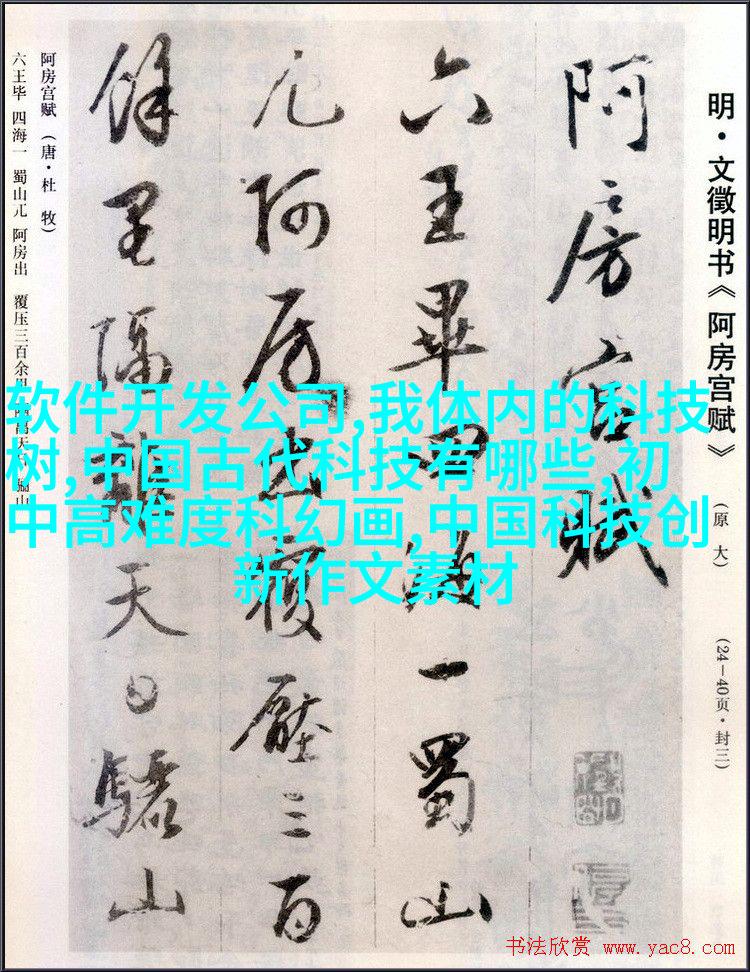 明·文徵明书《阿房宫赋》 (原 大) (24—40页·封三)
阿房宫賦
六王畢四海一蜀山
兀阿房出覆壓三百
餘里隔離天日驪山
阿房宫赋(唐·杜 牧)
六王毕 四海一 蜀山兀 阿房出 覆压三百余里 隔离天日 骊山
软件开发公司,我体内的科技
树,中国古代科技有哪些,初
中高难度科幻画,中国科技创
新作文素材
书法欣赏 www.yac8.com